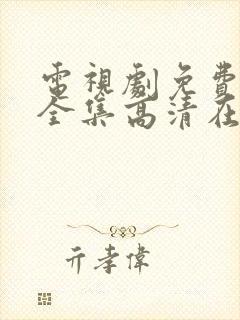 電視劇免費
全集高清在
亓孝偉